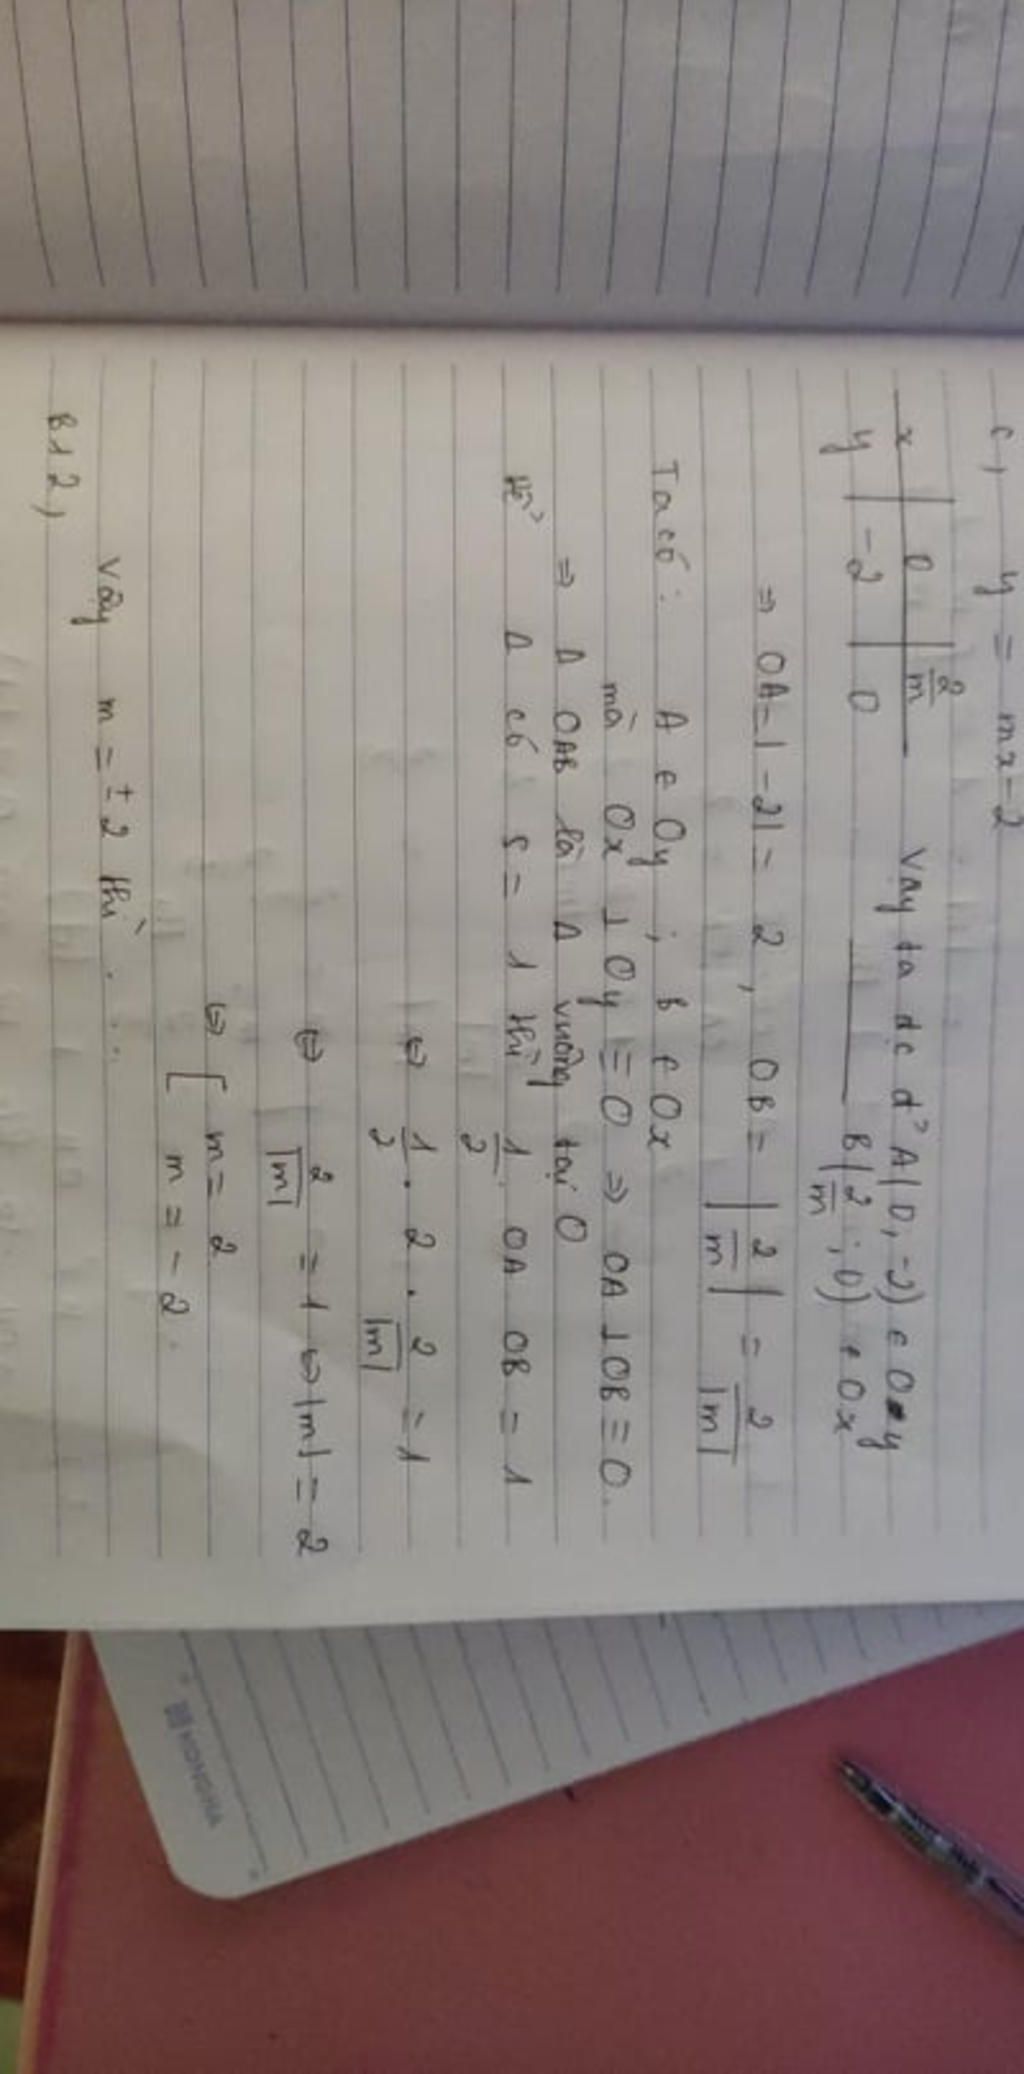 c, y = mx - 2
x | 0 | 2/m
y | -2 | 0
Vậy ta đc đ' A(0, -2) ∈ Oy
B(2/m ; 0) ∈ Ox
⇒ OA = |-2| = 2, OB = |2/m| = 2/|m|
Ta có : A ∈ Oy ; B ∈ Ox
mà Ox ⊥ Oy = 0 ⇒ OA ⊥ OB = 0.
⇒ Δ OAB là Δ vuông tại O
Để Δ có S = 1 thì 1/2 . OA OB = 1
⇔ 1/2 . 2 . 2/|m| = 1
⇔ 2/|m| = 1 ⇔ |m| = 2
⇔ [ m = 2
m = -2.
Vậy m = ±2 thì ...
B12,